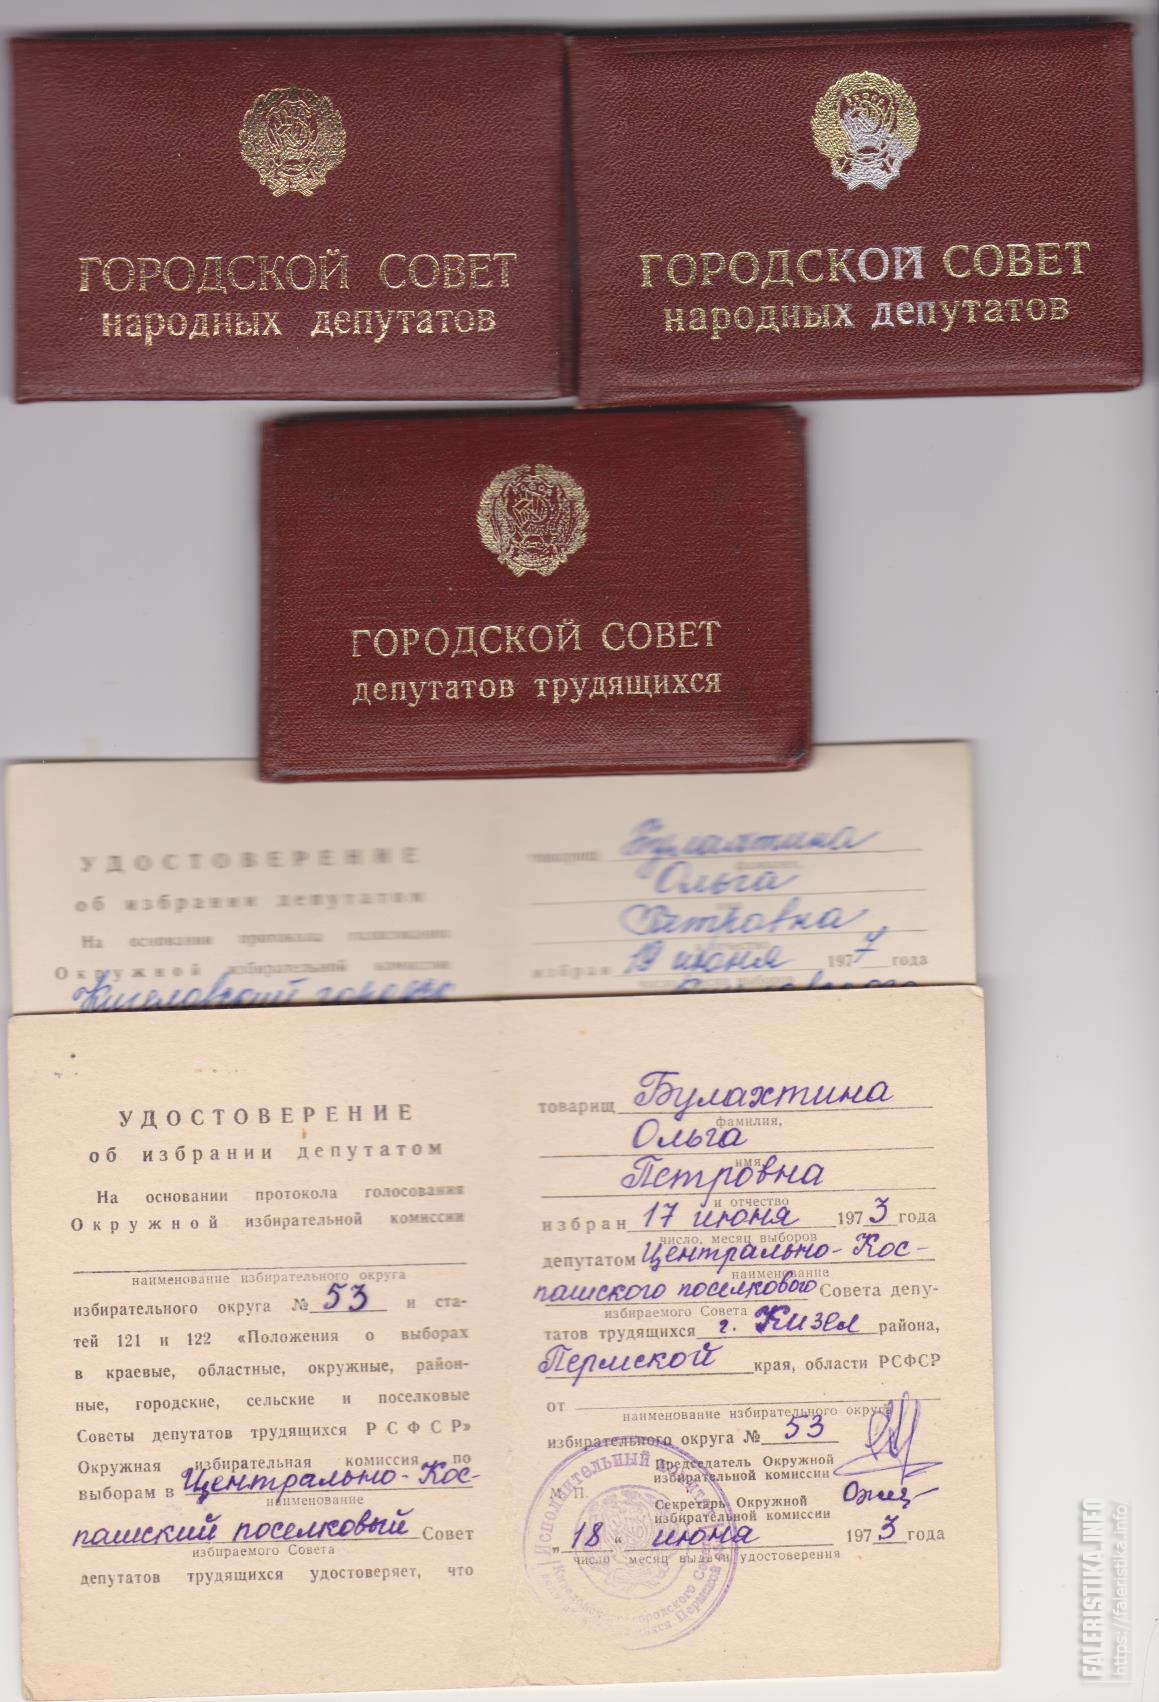 ГОРОДСКОЙ СОВЕТ
народных депутатов
ГОРОДСКОЙ СОВЕТ
народных депутатов
ГОРОДСКОЙ СОВЕТ
депутатов трудящихся
УДОСТОВЕРЕНИЕ
об избрании депутатом
На основании протокола голосования
Окружной избирательной комиссии
Кизеловский городск
товарищ Булахтина
фамилия,
Ольга
имя
Петровна
и отчество
избран 19 июня 1977 года
число, месяц выборов
УДОСТОВЕРЕНИЕ
об избрании депутатом
На основании протокола голосования
Окружной избирательной комиссии
наименование избирательного округа
избирательного округа № 53 и ста-
тей 121 и 122 «Положения о выборах
в краевые, областные, окружные, район-
ные, городские, сельские и поселковые
Советы депутатов трудящихся РСФСР»
Окружная избирательная комиссия по
выборам в Центрально-Кос-
наименование
пашский поселковый Совет
избираемого Совета
депутатов трудящихся удостоверяет, что
товарищ Булахтина
фамилия,
Ольга
имя
Петровна
и отчество
избран 17 июня 1973 года
число, месяц выборов
депутатом Центрально-Кос-
наименование
пашского поселкового Совета депу-
избираемого Совета
татов трудящихся г. Кизел района,
Пермской края, области РСФСР
от
наименование избирательного округа
избирательного округа № 53
Председатель Окружной
избирательной комиссии
М. П.
Секретарь Окружной
избирательной комиссии
„18" июня 1973 года
число месяц выдачи удостоверения
Исполнительный комитет
Кизеловского городского Совета
FALERISTIKA.INFO
https://faleristika.info/